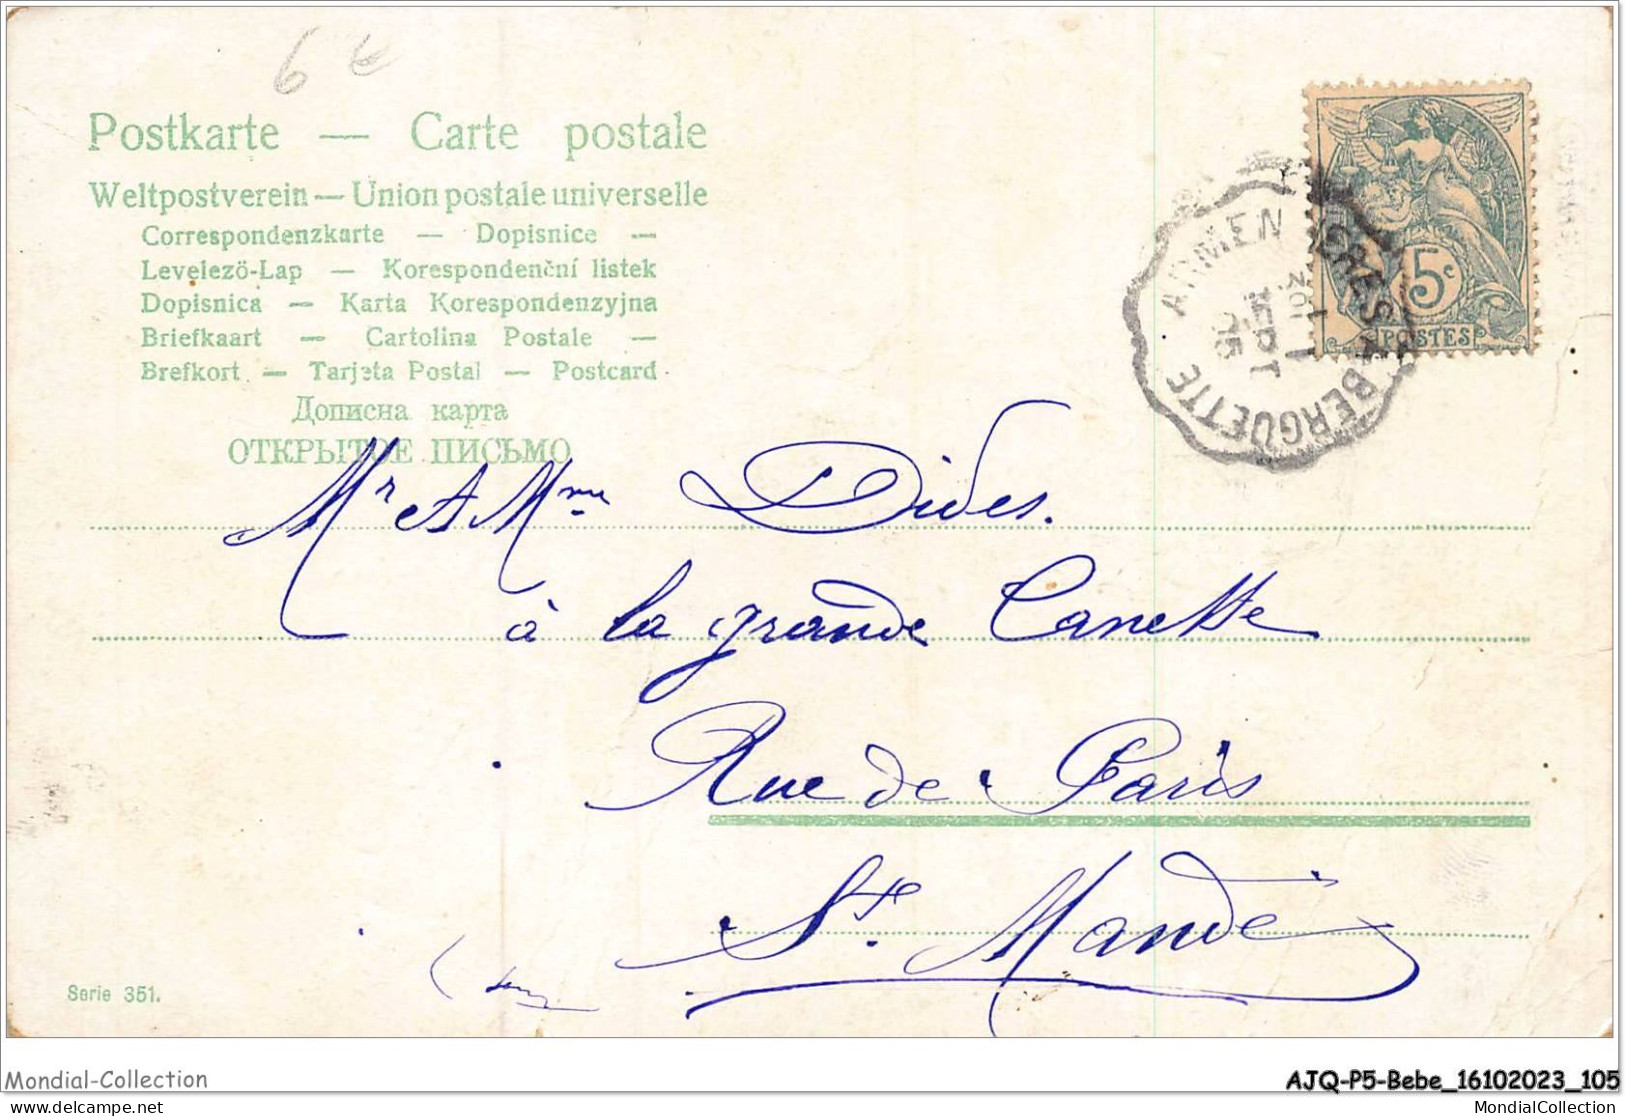 6 €
Postkarte — Carte postale
Weltpostverein — Union postale universelle
Correspondenzkarte — Dopisnice —
Levelező-Lap — Korespondenční listek
Dopisnica — Karta Korespondenzyjna
Briefkaart — Cartolina Postale —
Brefkort — Tarjeta Postal — Postcard
Дописна карта
ОТКРЫТОЕ ПИСЬМО
5c
POSTES
ARMENTIÈRES * BERGUETTE
1
SEPT
05
Mr & Mme Dides.
à la grande Canette
Rue de Paris
St. Mandé
Serie 351.
Mondial-Collection
AJQ-P5-Bebe_16102023_105
delcampe.net
MondialCollection